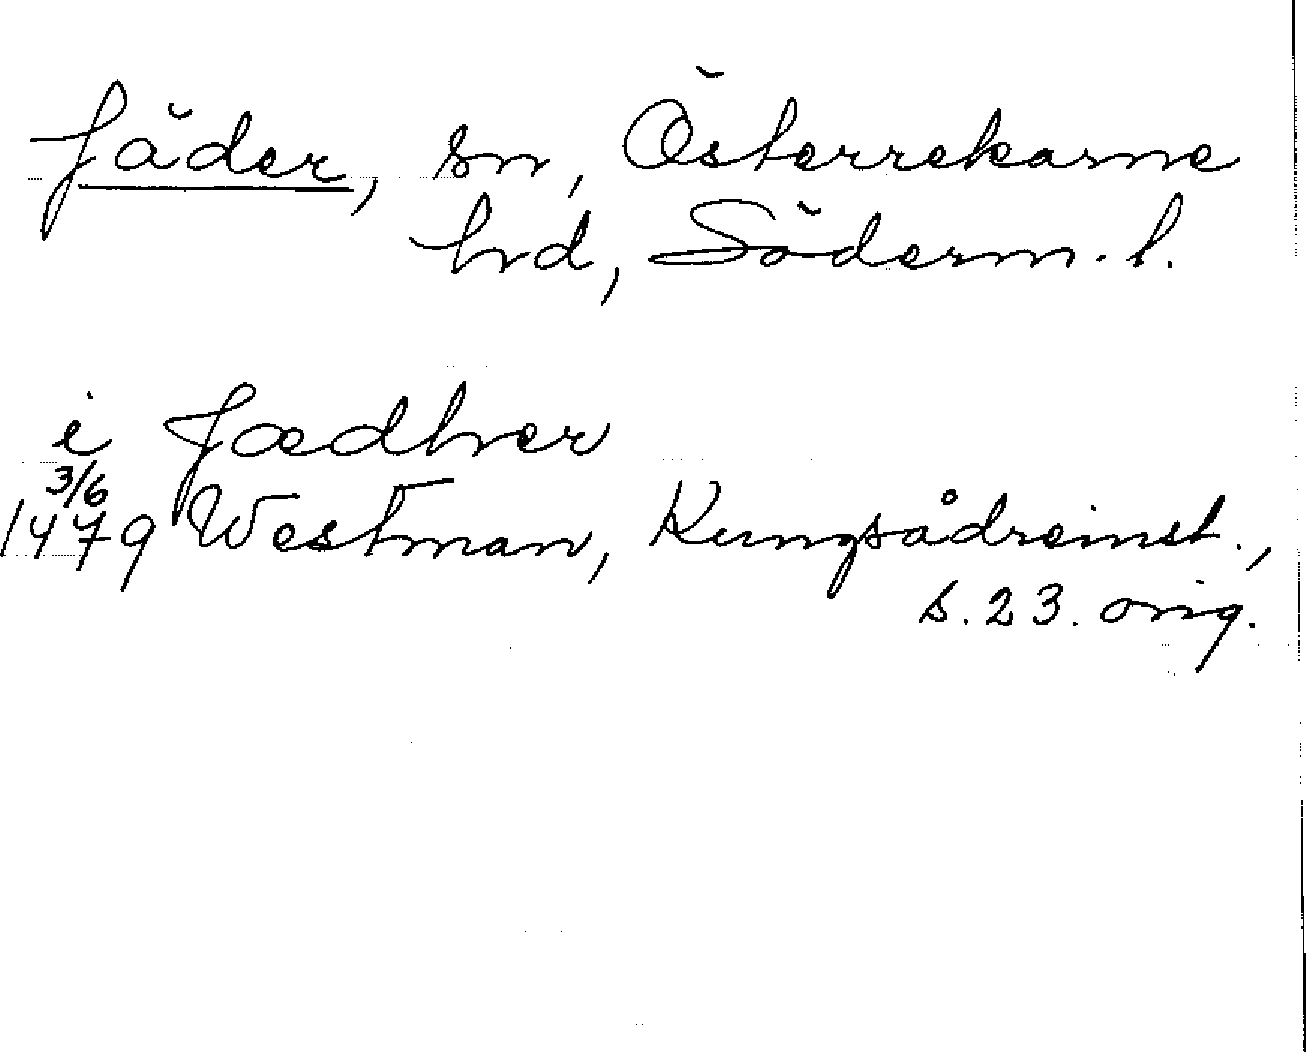 Jäder, sn, Österrekarne
hd, Söderm. l.
i Jædher
3/6
1479 Westman, Kungsådreinst.,
s. 23. orig.